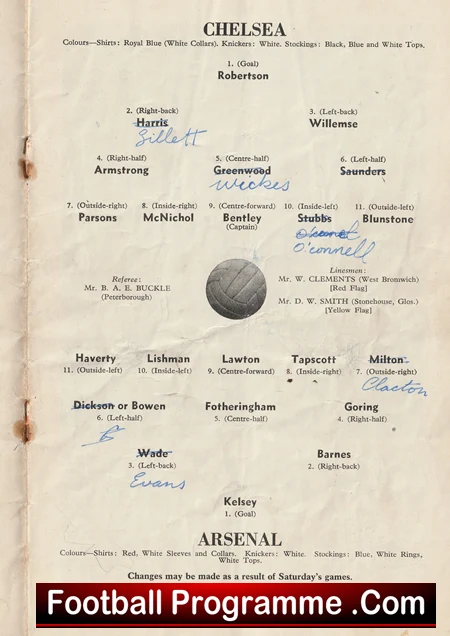 CHELSEA
Colours—Shirts: Royal Blue (White Collars). Knickers: White. Stockings: Black, Blue and White Tops.
1. (Goal)
Robertson
2. (Right-back) 3. (Left-back)
Harris Willemse
Gillett
4. (Right-half) 5. (Centre-half) 6. (Left-half)
Armstrong Greenwood Saunders
Wickes
7. (Outside-right) 8. (Inside-right) 9. (Centre-forward) 10. (Inside-left) 11. (Outside-left)
Parsons McNichol Bentley Stubbs Blunstone
(Captain)
O'connell
Referee: Linesmen:
Mr. B. A. E. BUCKLE Mr. W. CLEMENTS (West Bromwich)
(Peterborough) [Red Flag]
Mr. D. W. SMITH (Stonehouse, Glos.)
[Yellow Flag]
Haverty Lishman Lawton Tapscott Milton
11. (Outside-left) 10. (Inside-left) 9. (Centre-forward) 8. (Inside-right) 7. (Outside-right)
Clacton
Dickson or Bowen Fotheringham Goring
6. (Left-half) 5. (Centre-half) 4. (Right-half)
Wade Barnes
3. (Left-back) 2. (Right-back)
Evans
Kelsey
1. (Goal)
ARSENAL
Colours—Shirts: Red, White Sleeves and Collars. Knickers: White. Stockings: Blue, White Rings,
White Tops.
Changes may be made as a result of Saturday's games.
Football Programme .Com